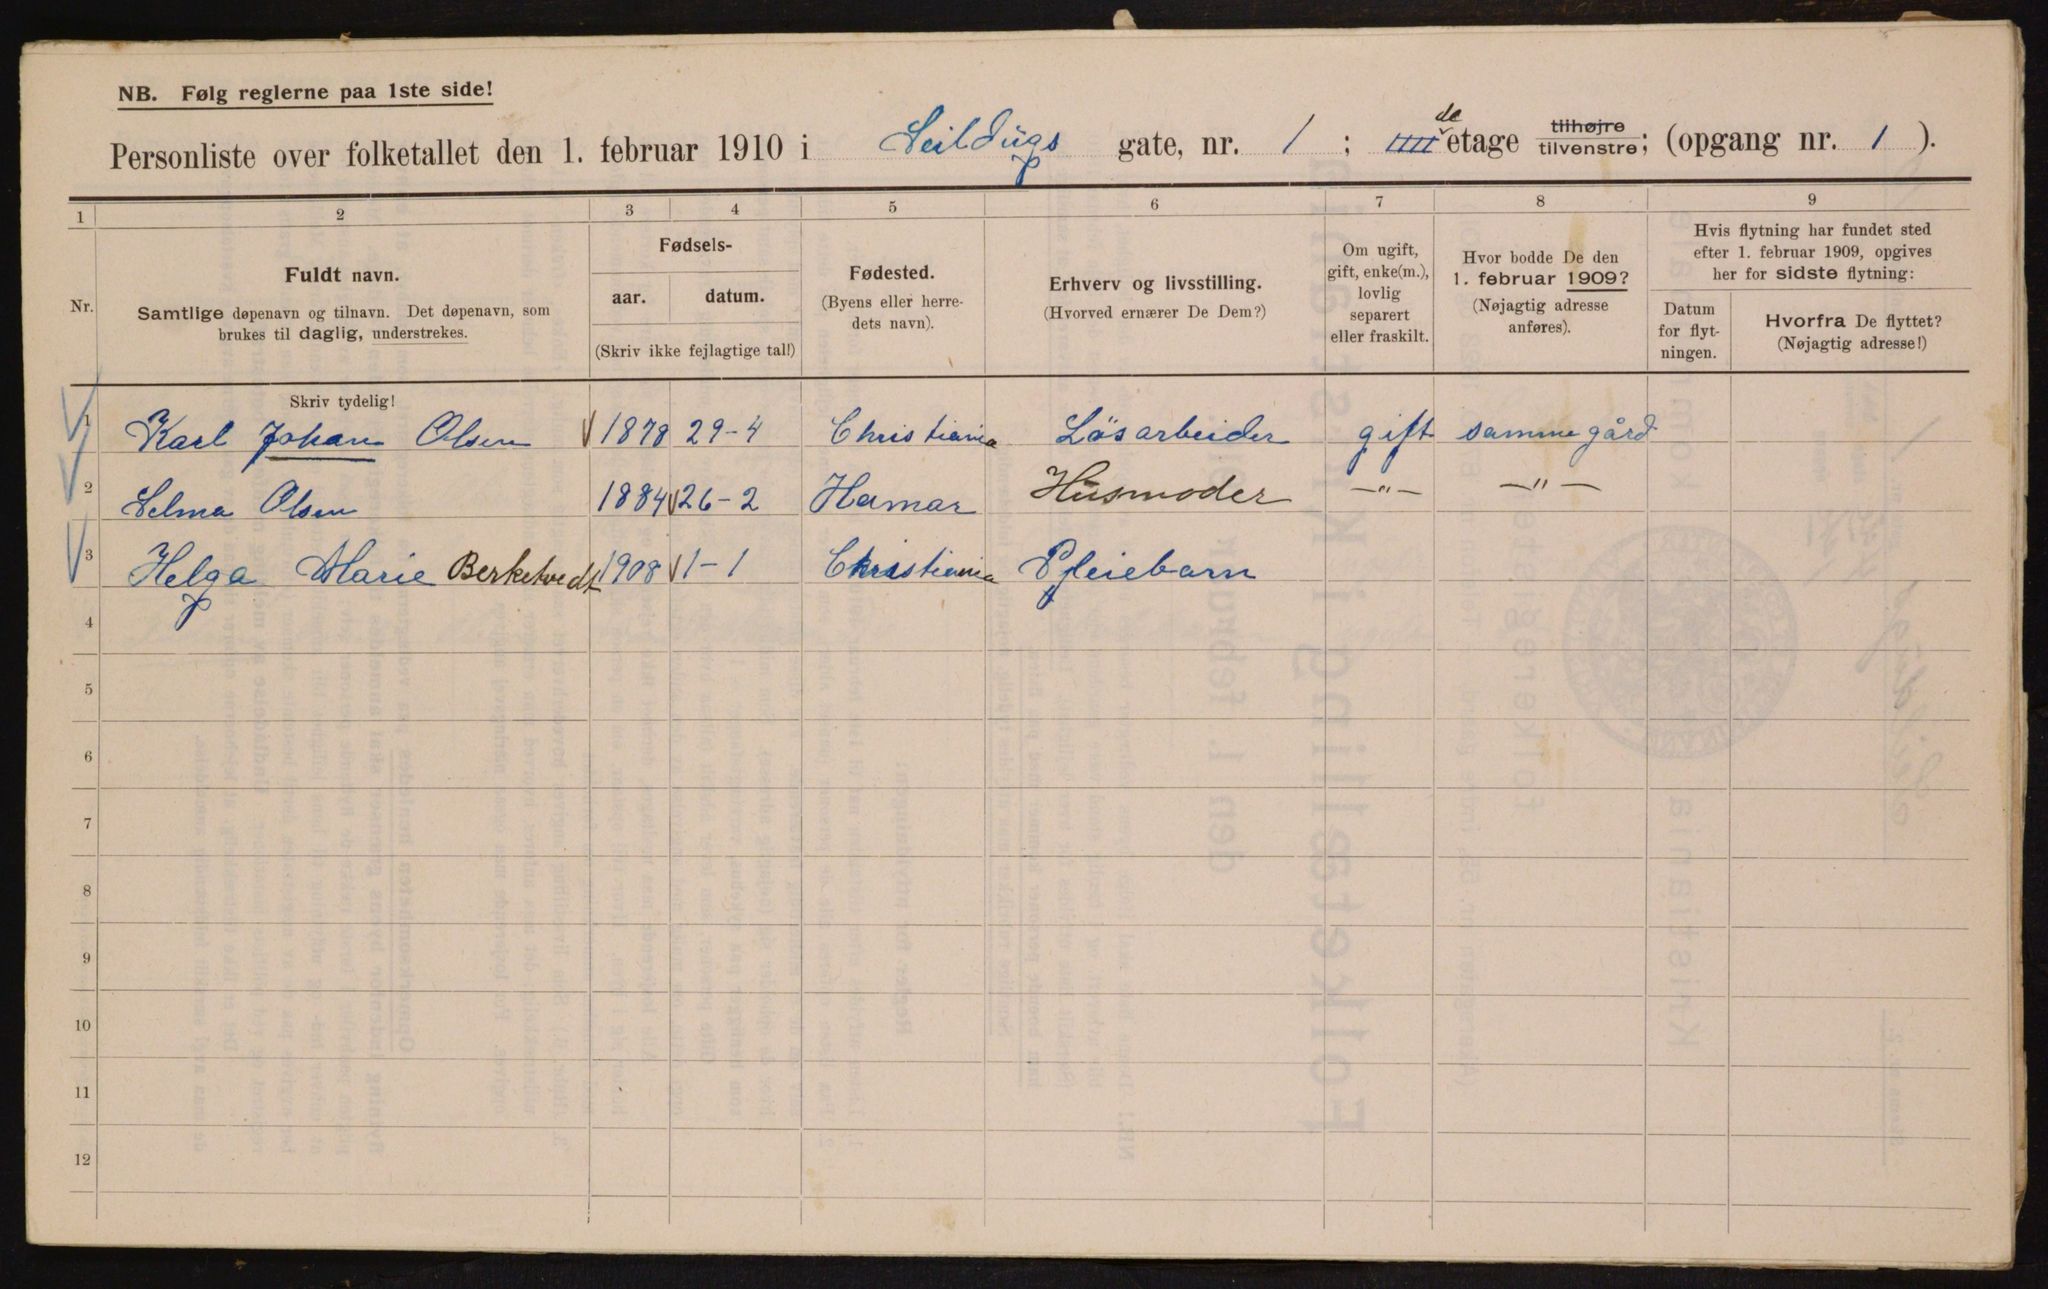 NB. Følg reglerne paa 1ste side!
Personliste over folketallet den 1. februar 1910 i Seildugs gate, nr. 1 ; IIII de etage tilhøjre tilvenstre; (opgang nr. 1 ).
1 2 3 4 5 6 7 8 9
Nr.
Fuldt navn.
Samtlige døpenavn og tilnavn. Det døpenavn, som
brukes til daglig, understrekes.
Fødsels-
aar. datum.
(Skriv ikke fejlagtige tal!)
Fødested.
(Byens eller herre-
dets navn).
Erhverv og livsstilling.
(Hvorved ernærer De Dem?)
Om ugift,
gift, enke(m.),
lovlig
separert
eller fraskilt.
Hvor bodde De den
1. februar 1909?
(Nøjagtig adresse
anføres).
Hvis flytning har fundet sted
efter 1. februar 1909, opgives
her for sidste flytning:
Datum
for flyt-
ningen.
Hvorfra De flyttet?
(Nøjagtig adresse!)
Skriv tydelig!
1 Karl Johan Olsen 1878 29-4 Christiania Løsarbeider gift samme gård
2 Selma Olsen 1884 26-2 Hamar Husmoder —"— —"—
3 Helga Marie Berketvedt 1908 1-1 Christiania Pleiebarn
4
5
6
7
8
9
10
11
12